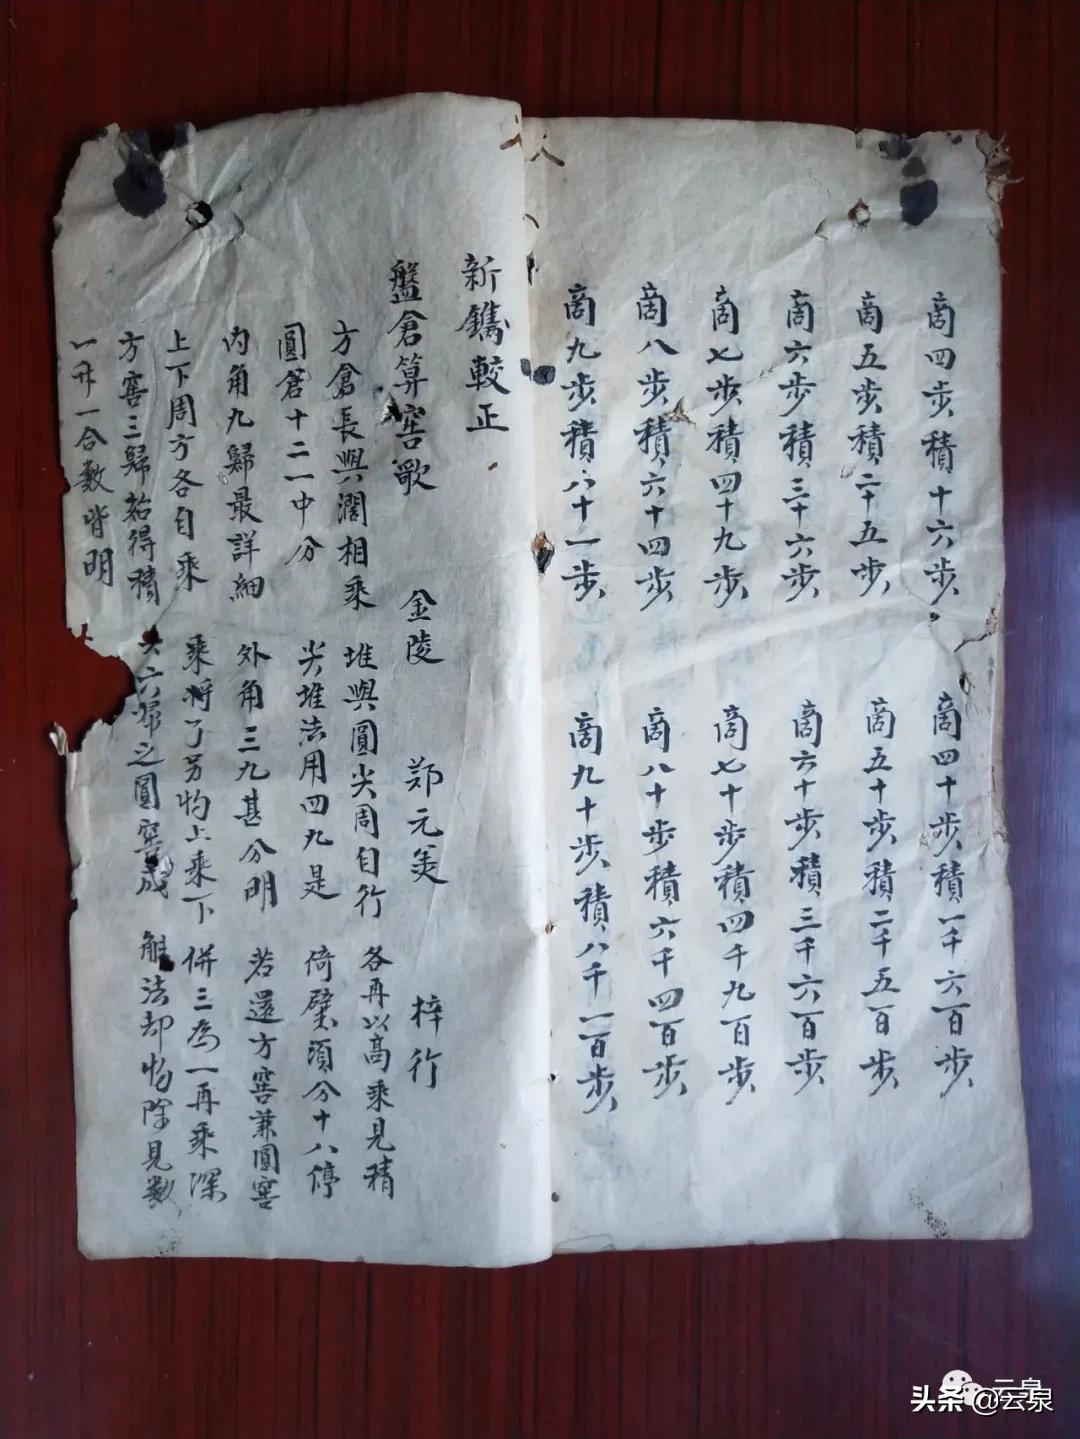 商四步積十六步 商四十步積一千六百步
商五步積二十五步 商五十步積二千五百步
商六步積三十六步 商六十步積三千六百步
商七步積四十九步 商七十步積四千九百步
商八步積六十四步 商八十步積六千四百步
商九步積八十一步 商九十步積八千一百步
新鐫較正
盤倉算窖歌 金陵 鄭元美 梓行
方倉長與濶相乘 堆與圓尖周自行 各再以高乘見積
圓倉十二一中分 尖堆法用四九是 倚壁須分十八停
內角九歸最詳細 外角三九甚分明 若還方窖兼圓窖
上下周方各自乘 乘將了另物上乘下 併三為一再乘深
方窖三歸若得積 六歸之圓窖成 解法却物除見数
一升一合数皆明
头条 @云泉
云泉